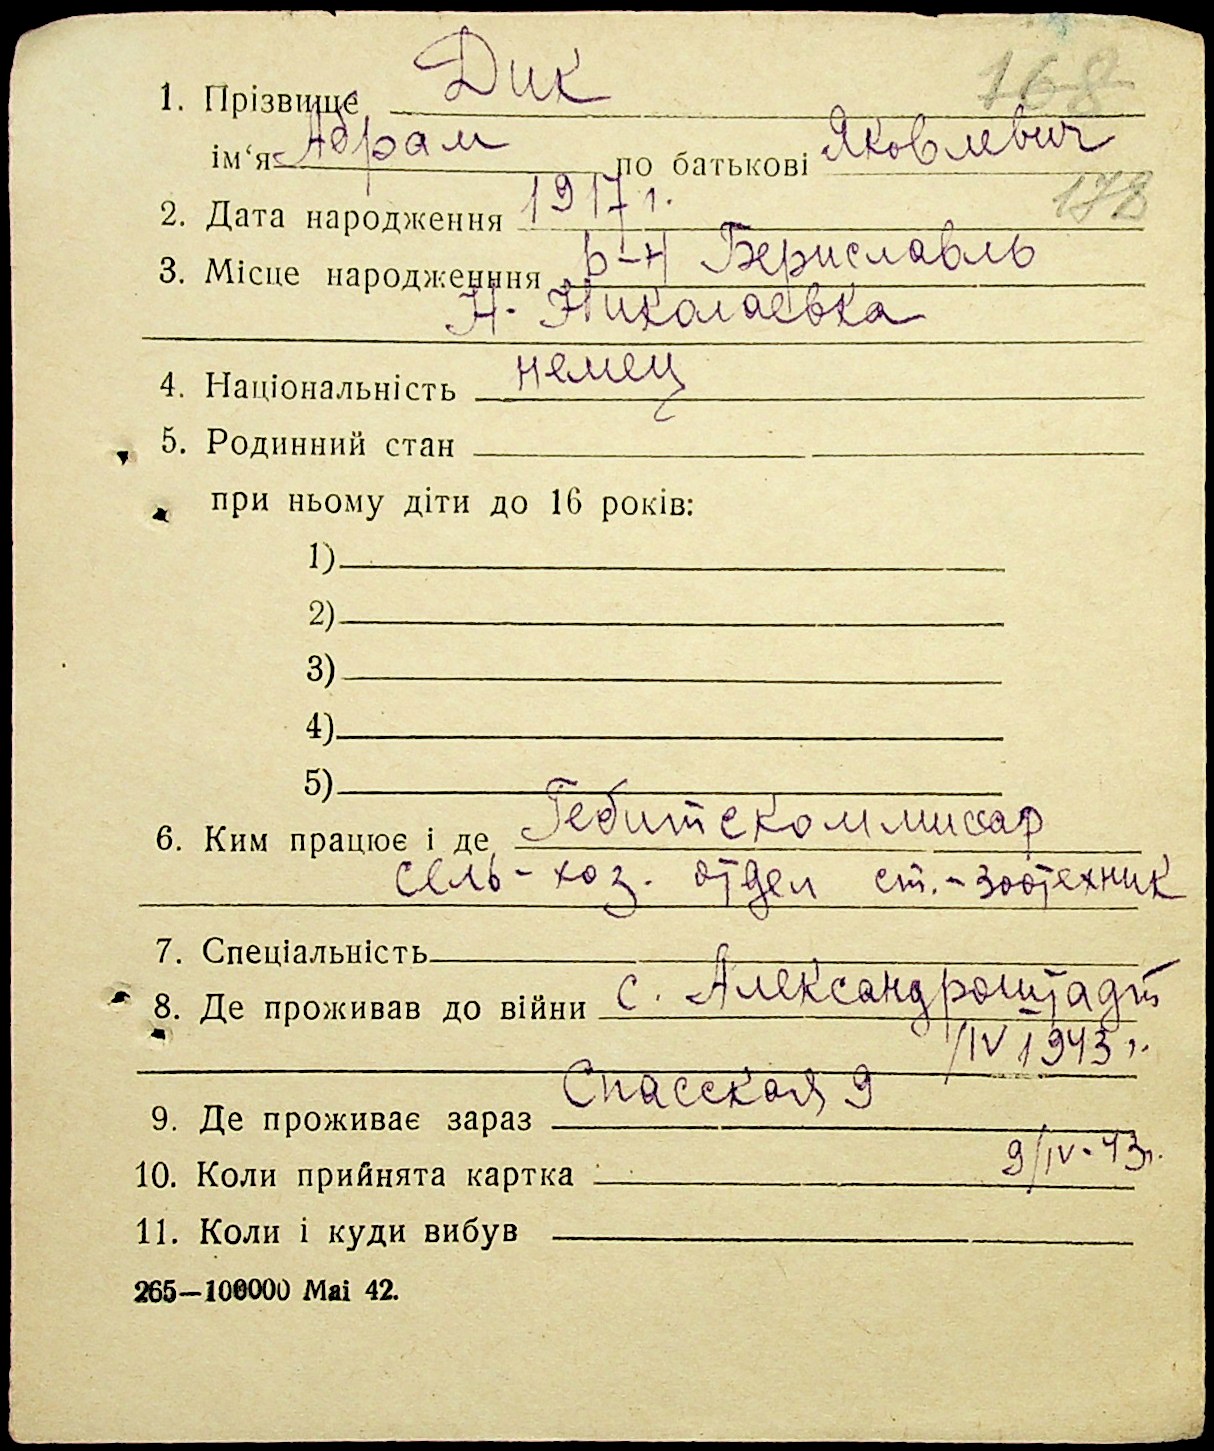 168
1. Прізвище Дик
ім‘я Абрам по батькові Яковлевич
178
2. Дата народження 1917 г.
3. Місце народженння р-н Бериславль
Н. Николаевка
4. Національність немец
5. Родинний стан
при ньому діти до 16 років:
1)
2)
3)
4)
5)
6. Ким працює і де Гебитскоммисар
сель-хоз. отдел ст.-зоотехник
7. Спеціальність
8. Де проживав до війни с. Александроштадт
/IV 1943 г.
9. Де проживає зараз Спасская 9
10. Коли прийнята картка 9/IV-43г.
11. Коли і куди вибув
265—100000 Mai 42.